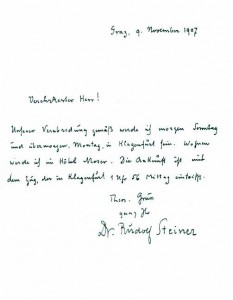 Graz, 9. November 1907
Verehrtester Herr!
Unserer Verabredung gemäß werde ich morgen Sonntag
und übermorgen, Montag, in Klagenfurt sein. Wohnen
werde ich im Hôtel Moser. Die Ankunft ist mit
dem Zug, der in Klagenfurt 1 Uhr 56 Mittag eintrifft.
Theos. Gruß
ganz Ihr
Dr. Rudolf Steiner